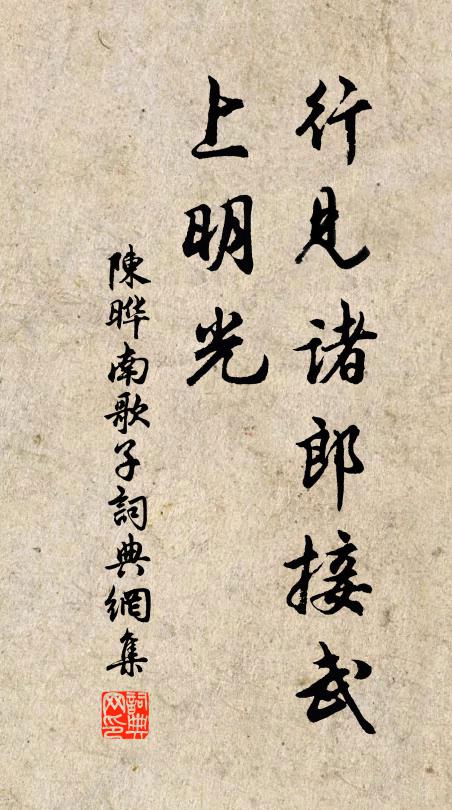 行見诸郎接武
上明光
陳晔南歌子詞典網集
詞典网印